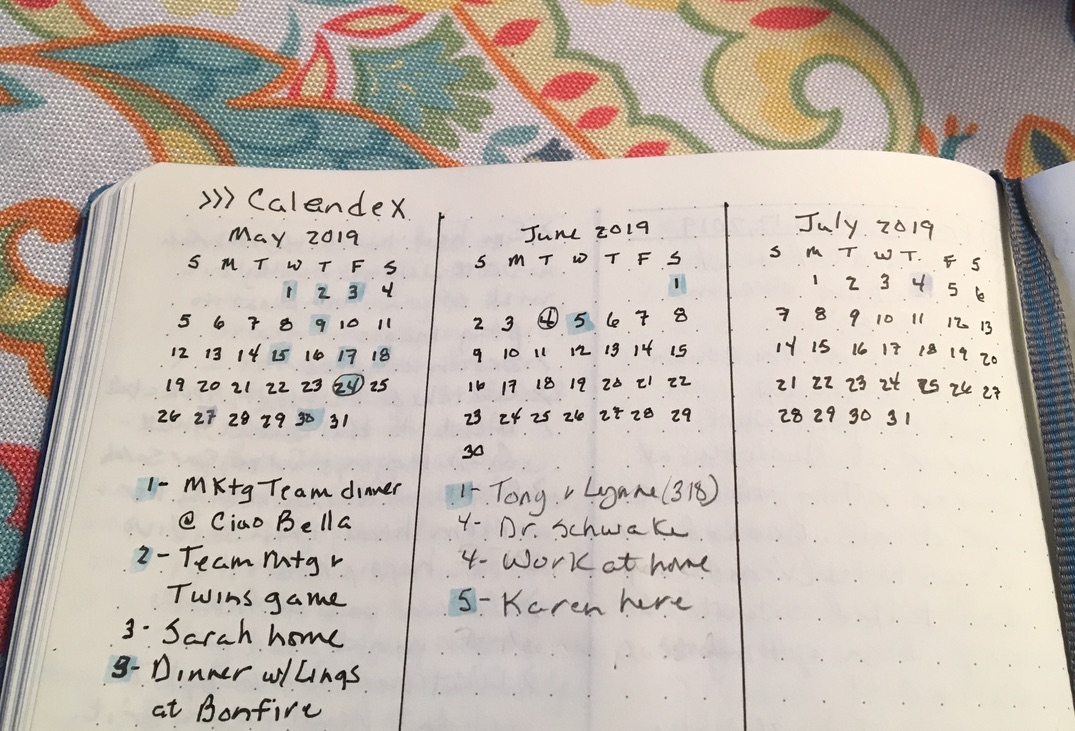 >>> Calendex
May 2019
S M T W T F S
1 2 3 4
5 6 7 8 9 10 11
12 13 14 15 16 17 18
19 20 21 22 23 24 25
26 27 28 29 30 31
1- MKtg Team dinner
@ Ciao Bella
2- Team mtg &
Twins game
3- Sarah home
9- Dinner w/Lings
at Bonfire
June 2019
S M T W T F S
1
2 3 4 5 6 7 8
9 10 11 12 13 14 15
16 17 18 19 20 21 22
23 24 25 26 27 28 29
30
1- Tony & Lynne (318)
4- Dr. Schwake
4- Work at home
5- Karen here
July 2019
S M T W T. F S
1 2 3 4 5 6
7 8 9 10 11 12 13
14 15 16 17 18 19 20
21 22 23 24 25 26 27
28 29 30 31